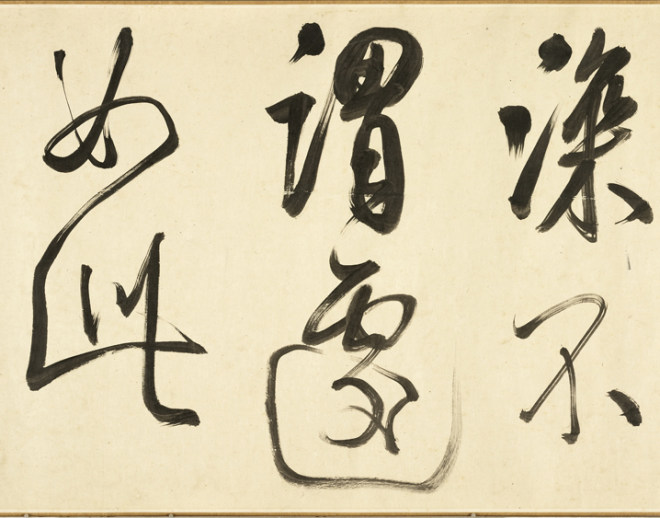 深不
謂遽
如此